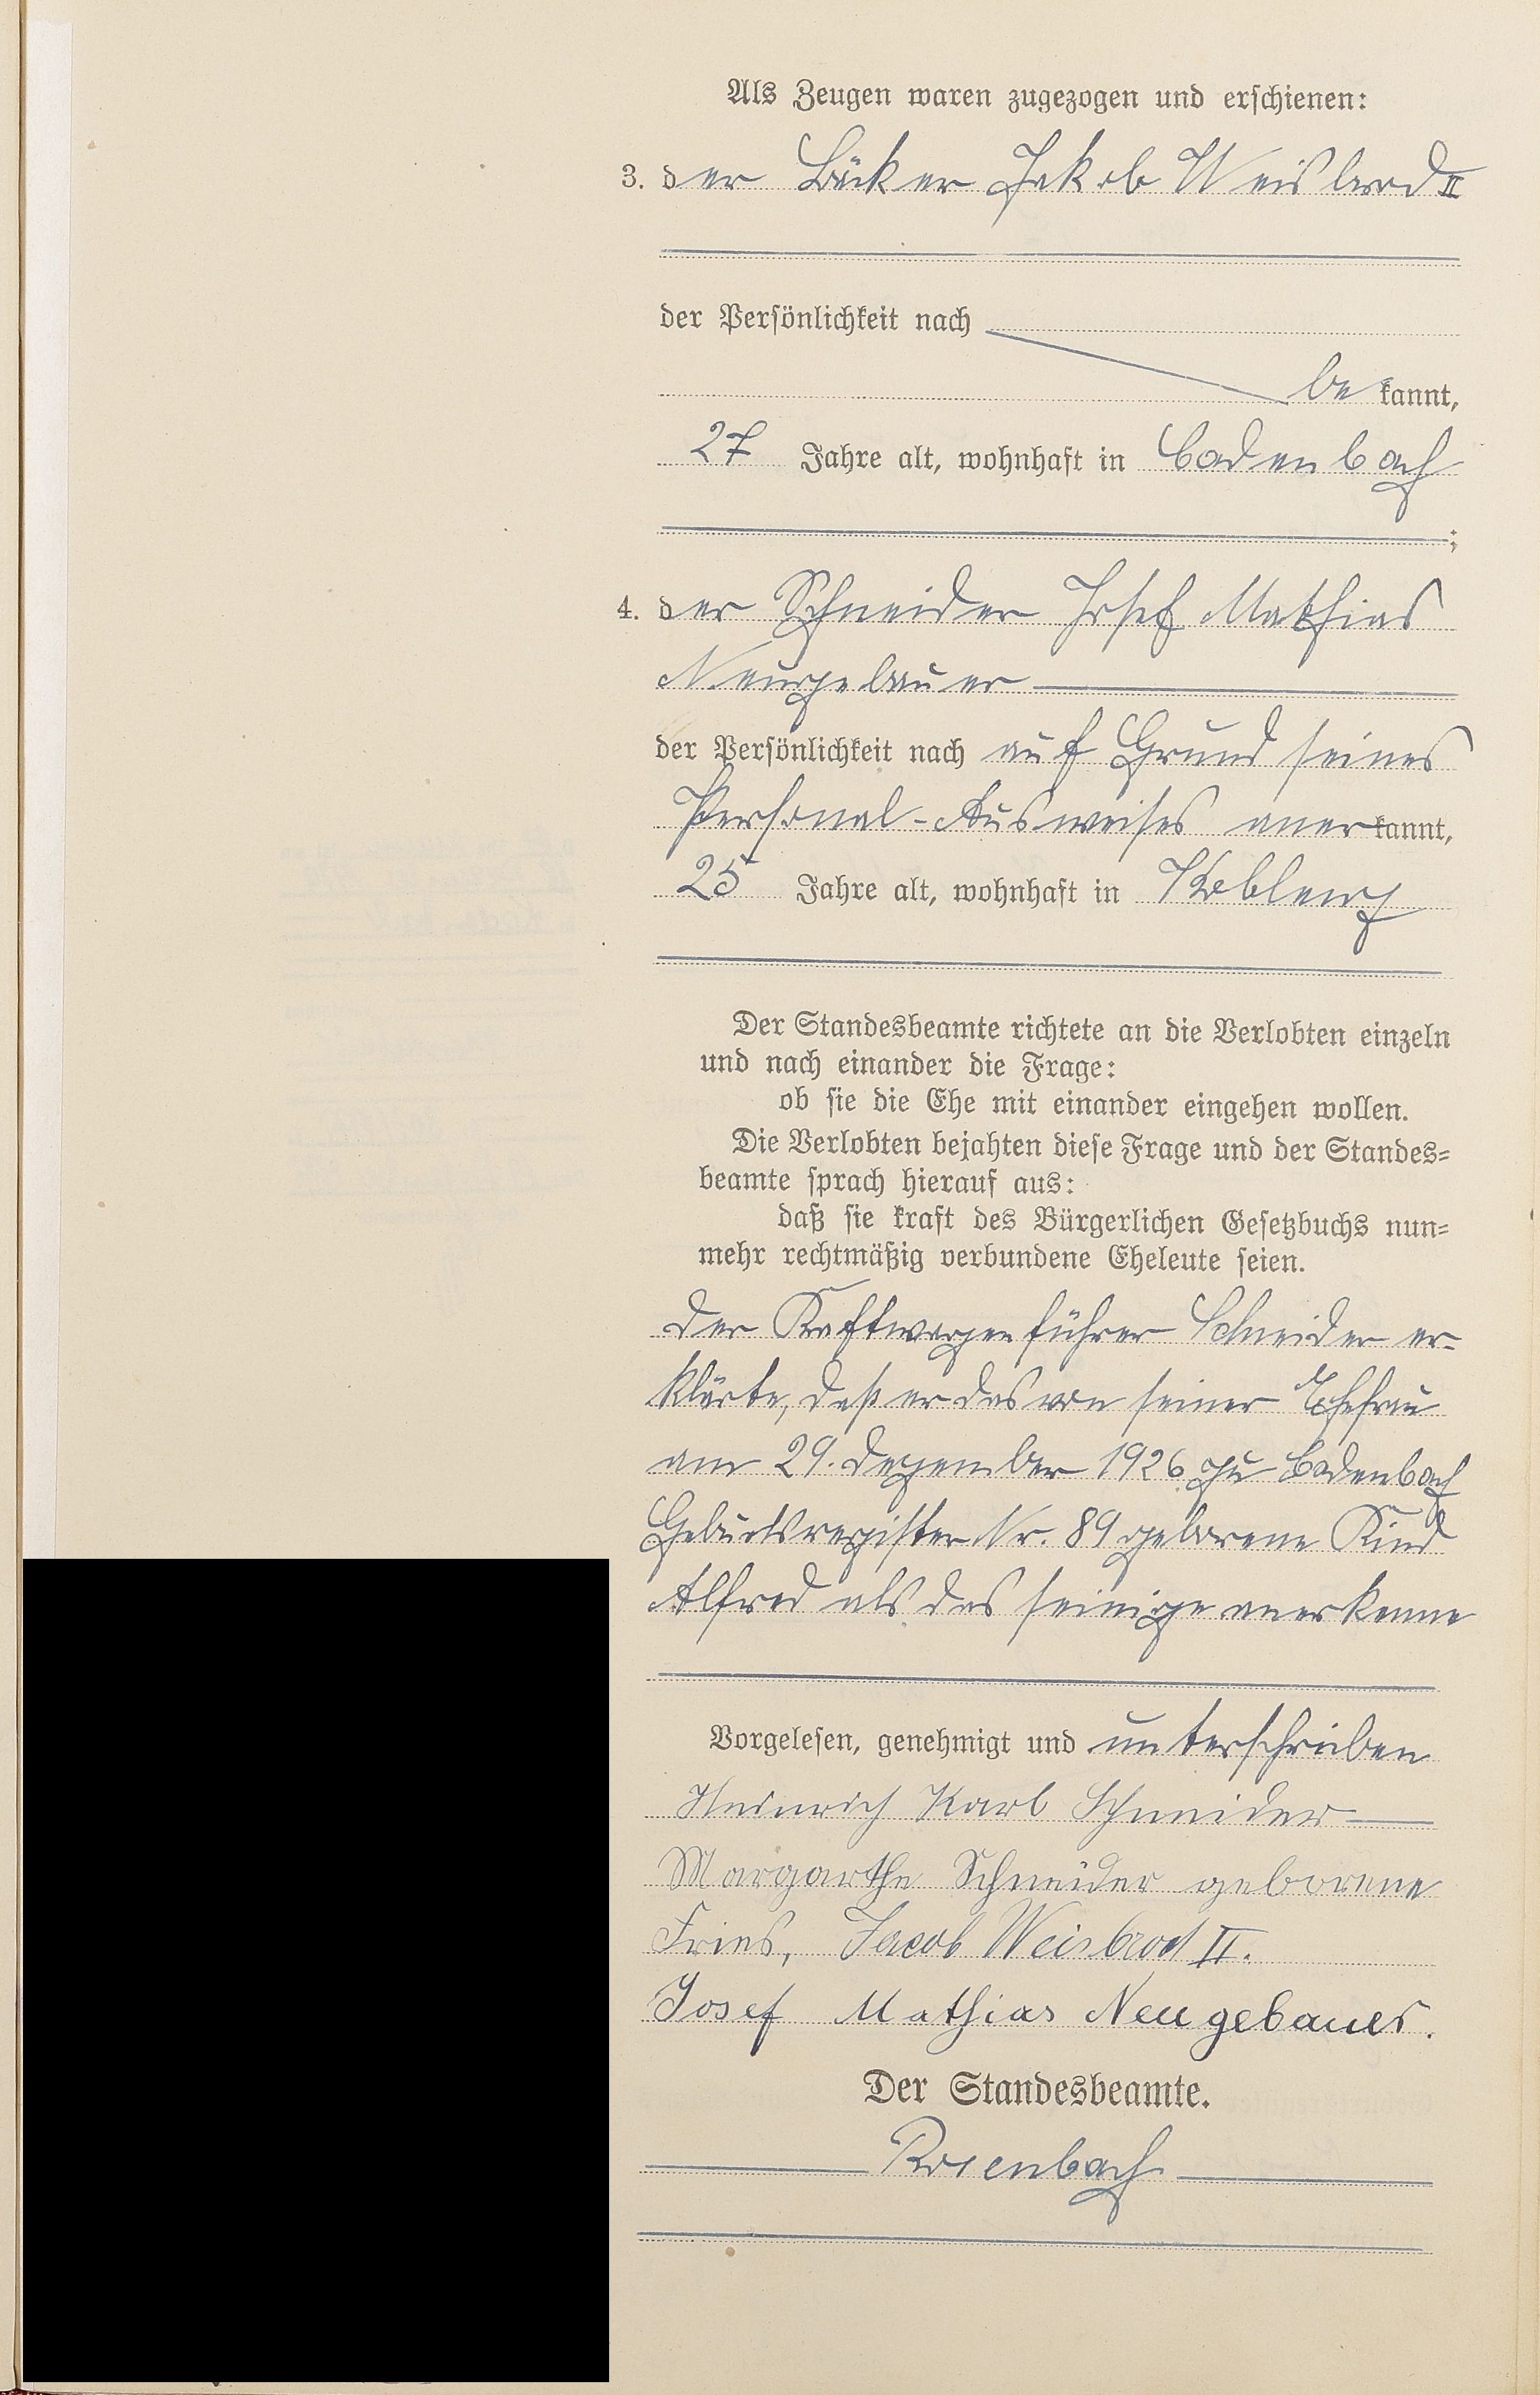 Als Zeugen waren zugezogen und erschienen:
3. der Bäcker Jakob Weisbrod II
der Persönlichkeit nach
be kannt,
27 Jahre alt, wohnhaft in Bodenbach
;
4. der Schneider Josef Mathias
Neugebauer
der Persönlichkeit nach auf Grund seines
Personal-Ausweises aner kannt,
25 Jahre alt, wohnhaft in Koblenz
Der Standesbeamte richtete an die Verlobten einzeln
und nach einander die Frage:
ob sie die Ehe mit einander eingehen wollen.
Die Verlobten bejahten diese Frage und der Standes-
beamte sprach hierauf aus:
daß sie kraft des Bürgerlichen Gesetzbuchs nun-
mehr rechtmäßig verbundene Eheleute seien.
Der Kraftwagenführer Schneider er-
klärte, daß er das von seiner Ehefrau
am 29. Dezember 1926 zu Bodenbach
Geburtsregister Nr. 89 geborene Kind
Alfred als das seinige anerkenne
Vorgelesen, genehmigt und unterschrieben
Heinrich Karl Schneider
Margarthe Schneider geborene
Fries, Jacob Weisbrod II.
Josef Mathias Neugebauer.
Der Standesbeamte.